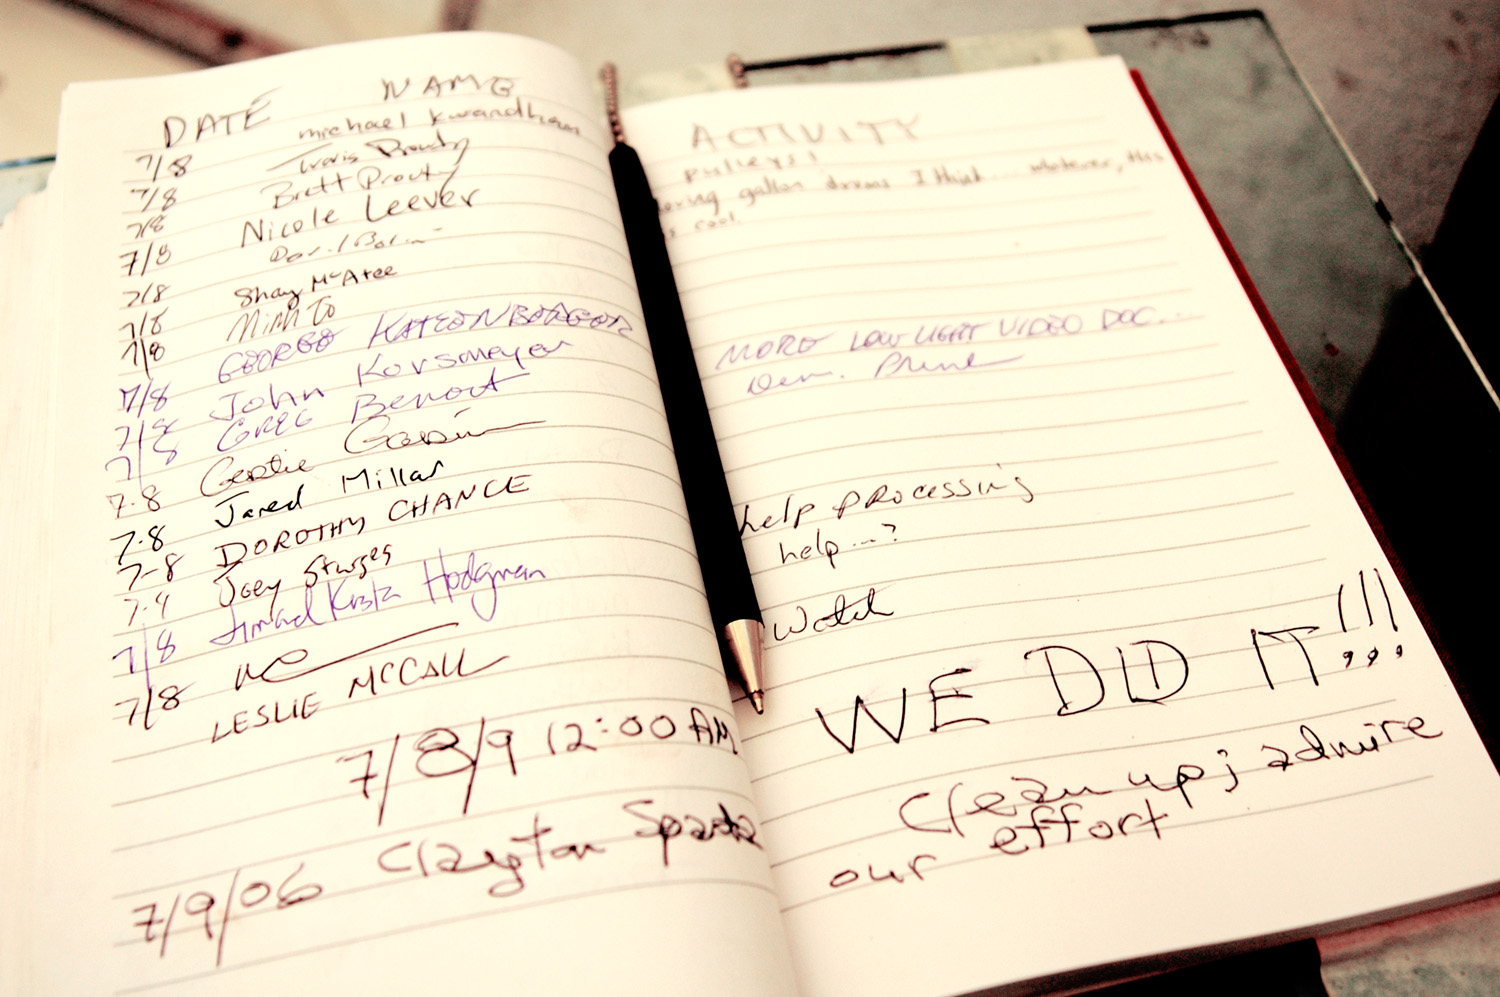 DATE NAME
michael
7/8 Travis Prouty
7/8 Brett Prouty
7/8 Nicole Leever
7/8
7/8 Shay McAtee
7/8 Minh To
7/8 GEORGE
7/8 John Korsmeyer
7/8 GREG Benoit
7/8
7-8 Jared Millar
7-8 DOROTHY CHANCE
7-8 Joey Sturges
7-9 Krista Hodgman
7/8
7/8 LESLIE MCCALL
7/8/9 12:00 AM
7/9/06 Clayton
ACTIVITY
pulleys!
gallon I think... whatever, this
is cool
MORE LOW LIGHT VIDEO DOC...
help processing
help...?
Watch
WE DID IT!!!
Clean up; admire
our effort